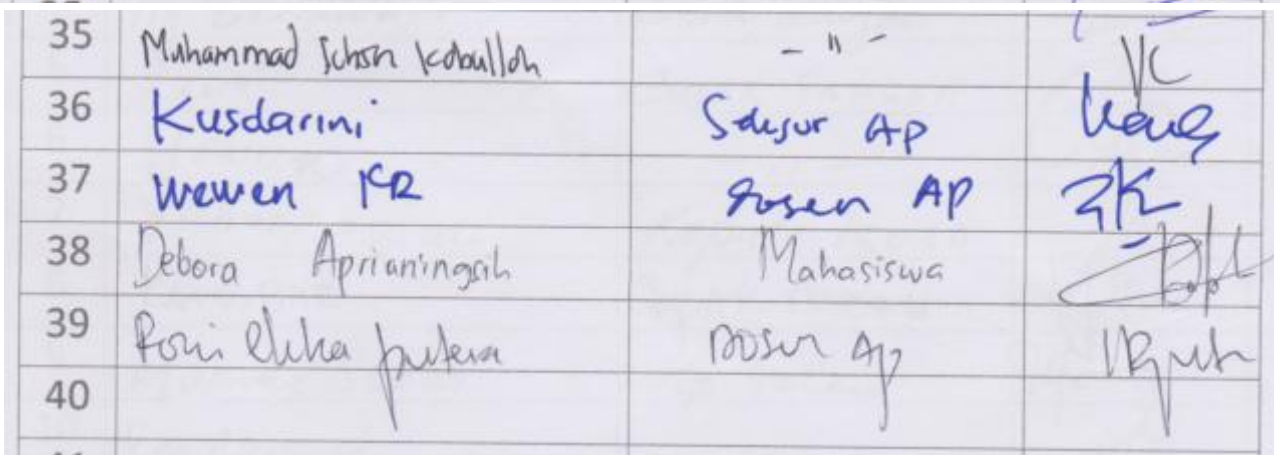 35 Muhammad Ichsan Kabulloh - " -
36 Kusdarini AP
37 Wewen KR Dosen AP
38 Debora Aprianingsih Mahasiswa
39 Roni Ekha Putera Dosen AP
40